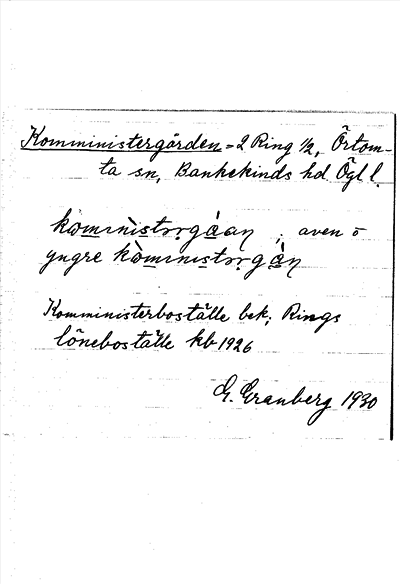 Komministergården = 2 Ring 1/2, Örtom-
ta sn, Bankekinds hd Ögl l.
kωministərgàaṇ ; även o
yngre kòministərgàṇ
Komministerboställe bek; Rings
löneboställe kb 1926
G. Granberg 1930